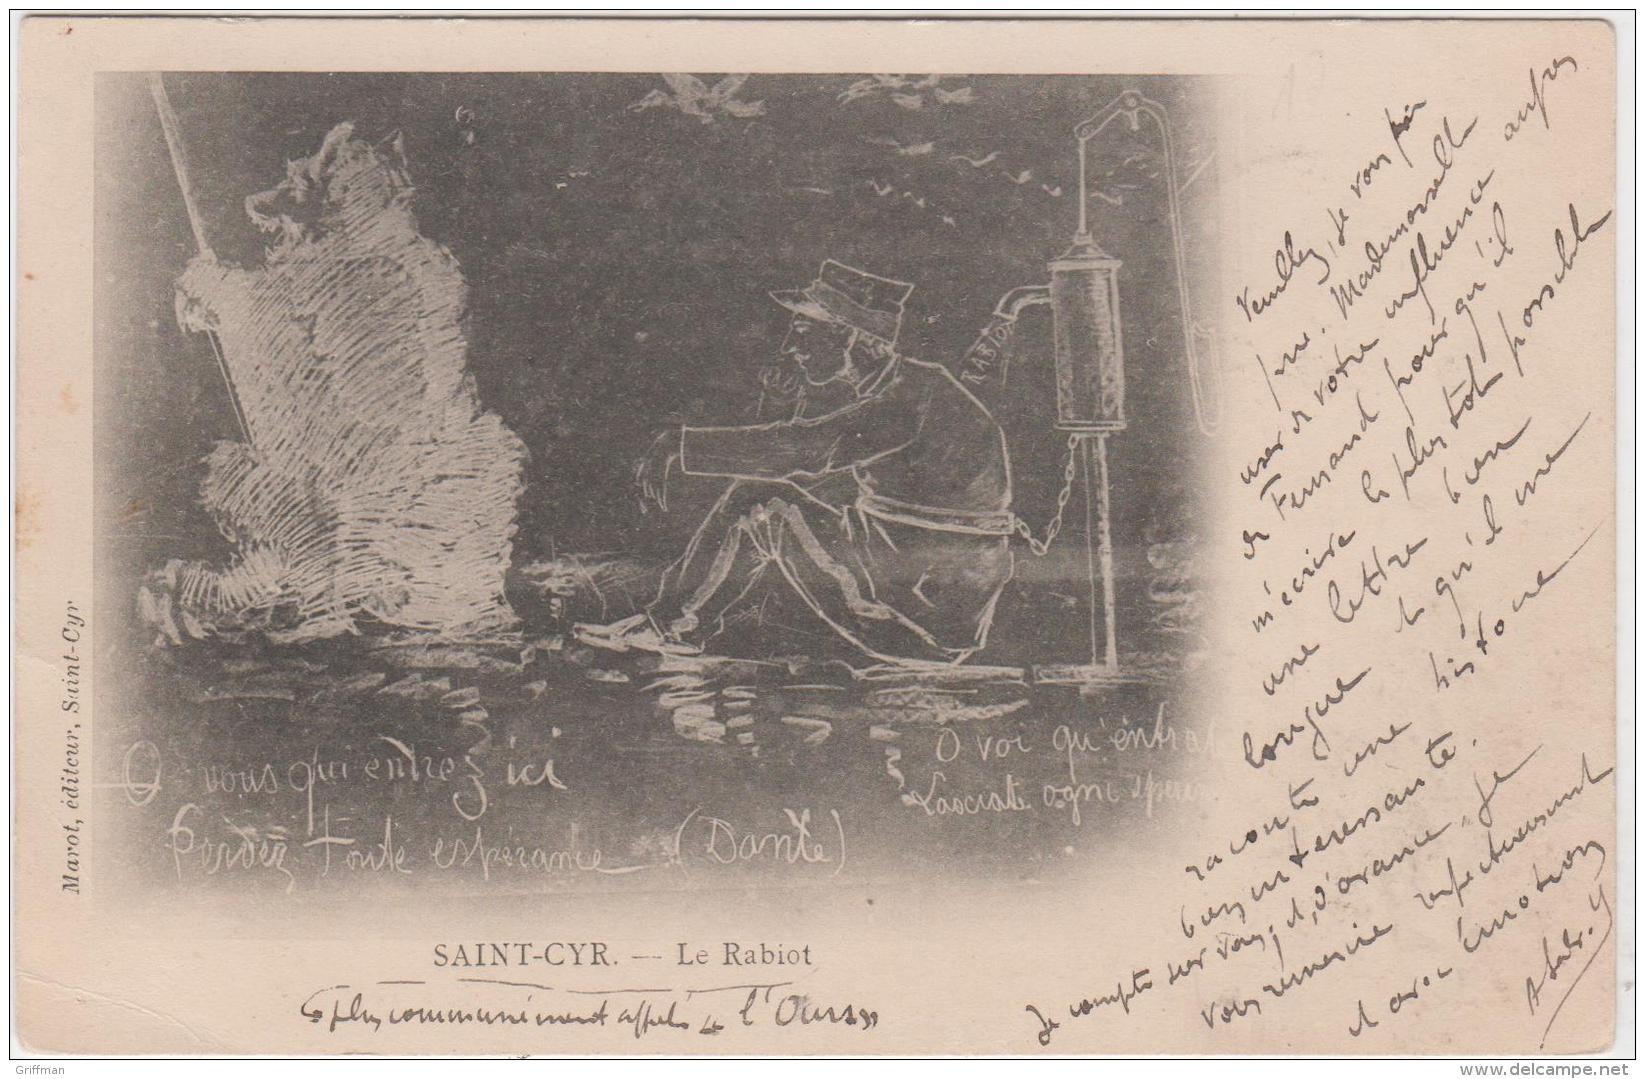 RABIOT
O vous qui entrez ici
Perdez toute espérance (Dante)
O voi qu'entrat
Lasciate ogni speran
SAINT-CYR. — Le Rabiot
plus communément appelé "l'Ours"
Marot, éditeur, Saint-Cyr
Veuillez, je vous
prie. Mademoiselle
user de votre influence auprès
de Fernand pour qu'il
m'écrive le plus tôt possible
une lettre bien
longue et qu'il me
raconte une histoire
bien intéressante.
Je compte sur vous, et, d'avance, je
vous remercie respectueusement
et avec émotion
Griffman
delcampe.net